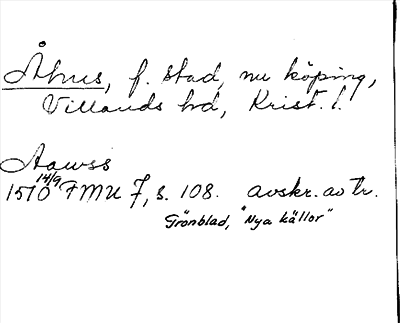 Åhus, f. stad, nu köping,
Villands hd, Krist. l.
Aawss
14/9
1510 FMU 7, s. 108. avskr. av tr.
Grönblad, "Nya källor"